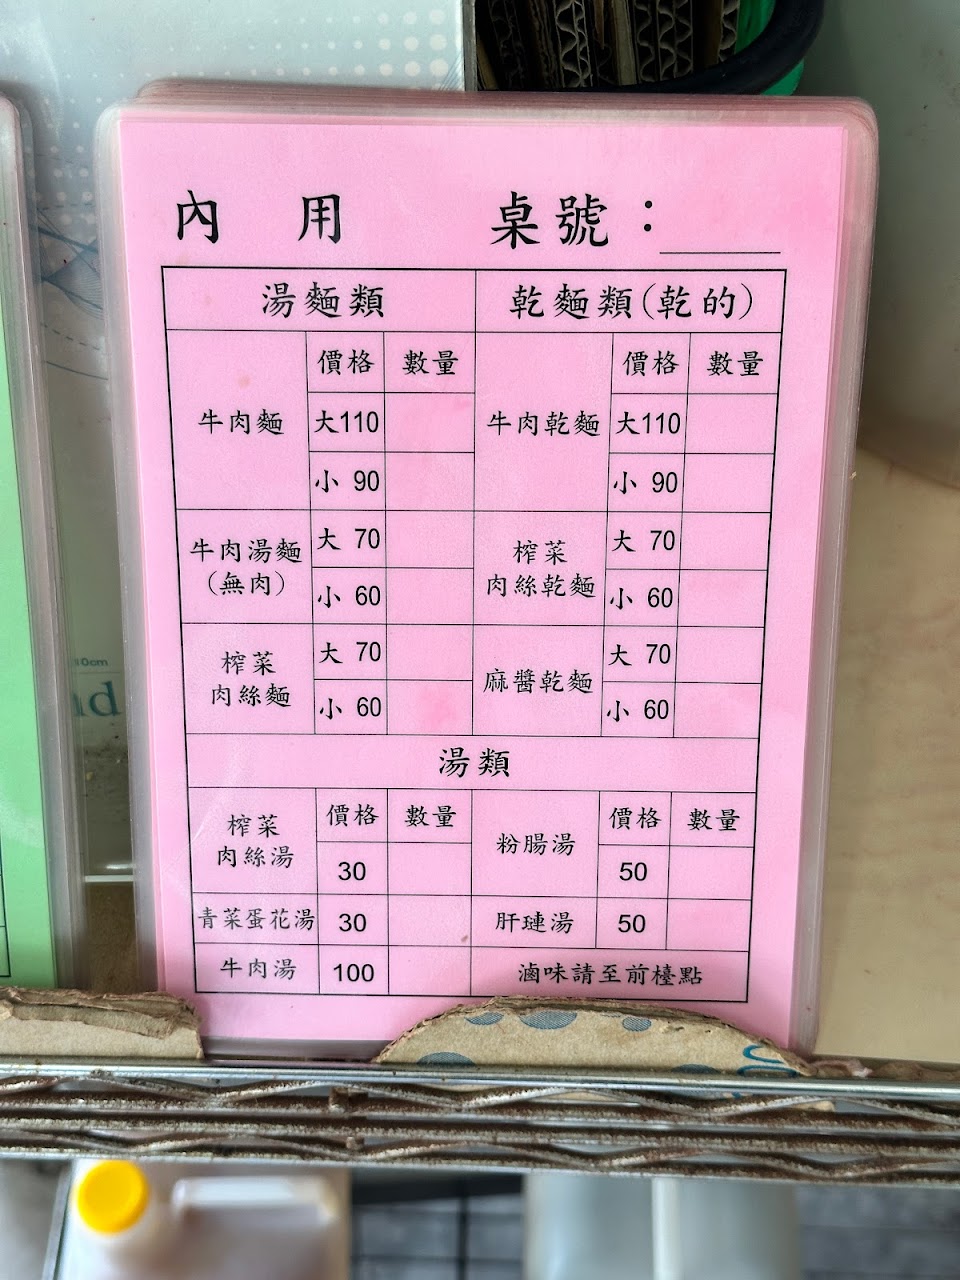 內 用 桌號：
湯麵類 乾麵類(乾的)
價格 數量 價格 數量
牛肉麵 大110 牛肉乾麵 大110
小 90 小 90
牛肉湯麵 大 70 榨菜 大 70
(無肉) 小 60 肉絲乾麵 小 60
榨菜 大 70 麻醬乾麵 大 70
肉絲麵 小 60 小 60
湯類
榨菜 價格 數量 粉腸湯 價格 數量
肉絲湯 30 50
青菜蛋花湯 30 肝璉湯 50
牛肉湯 100 滷味請至前檯點
10cm